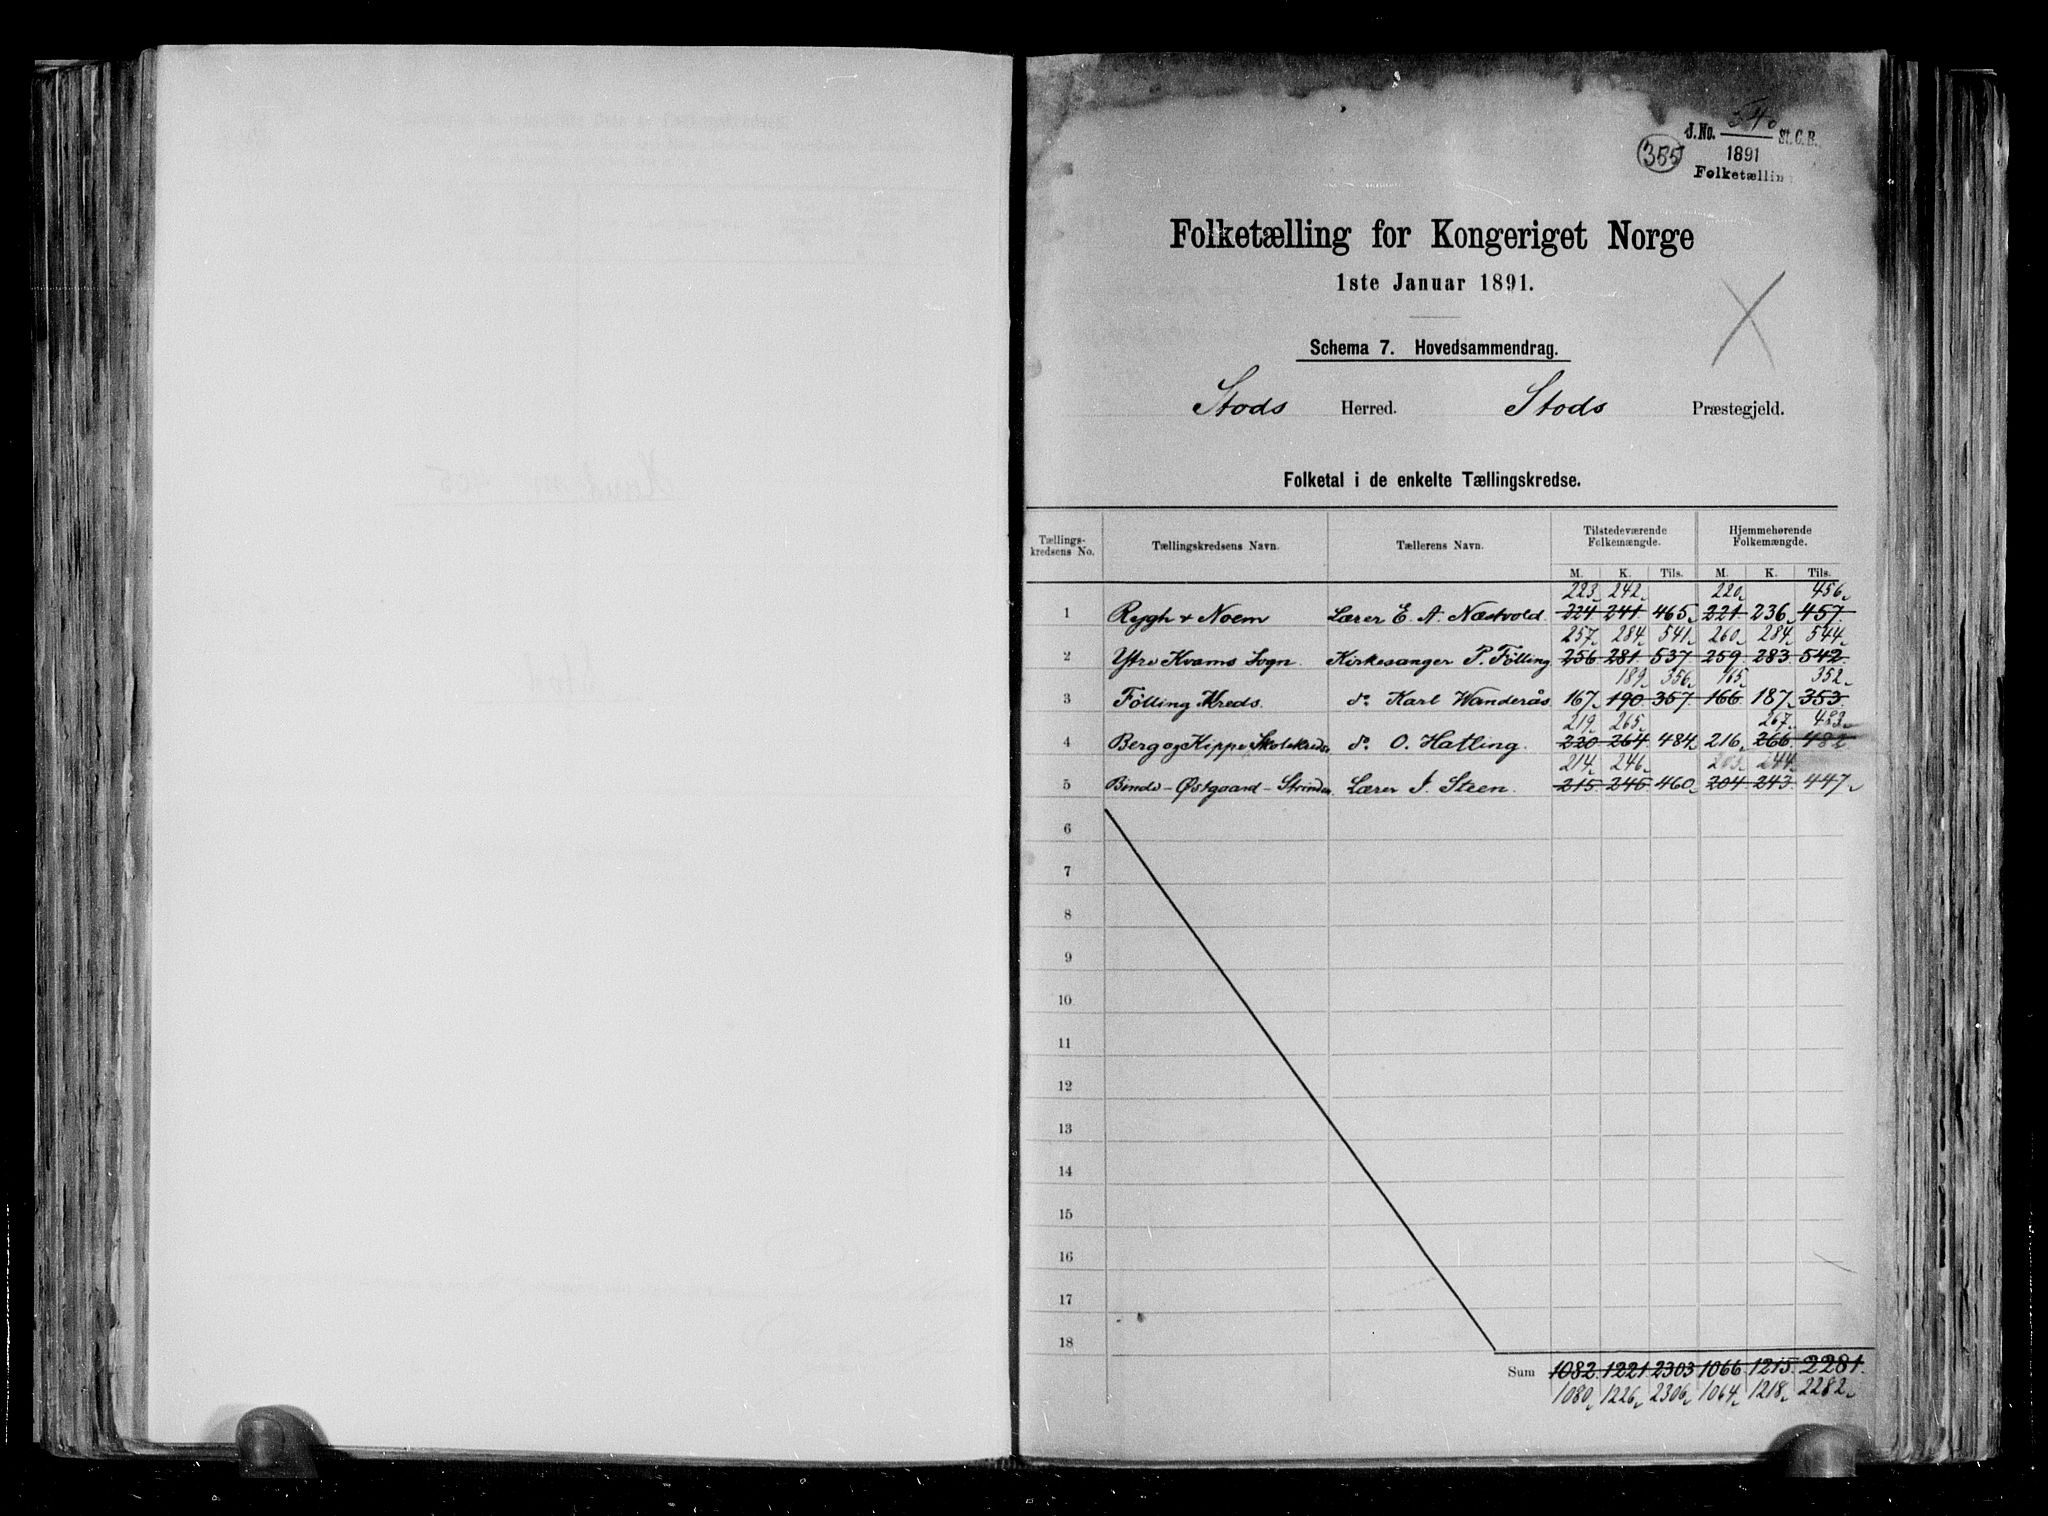 340
J. No. St. C. B.
355
1891
Folketællin
Folketælling for Kongeriget Norge
1ste Januar 1891.
Schema 7. Hovedsammendrag.
Stods Herred. Stods Præstegjeld.
Folketal i de enkelte Tællingskredse.
Tællings-kredsens No. Tællingskredsens Navn. Tællerens Navn. Tilstedeværende Folkemængde. Hjemmehørende Folkemængde.
M. K. Tils. M. K. Tils.
223 242 220 456
1 Rygh + Noem Lærer E. A. Næstvold 224 241 465 221 236 457
257 284 541 260 284 544
2 Ytre Kvams Sogn. Kirkesanger P. Følling 256 281 537 259 283 542
189 356 165 352
3 Følling Kreds. do Karl Wanderås 167 190 357 166 187 353
219 265 267 483
4 Berg og Kippe Skolekreds do O. Hatling. 220 264 484 216 266 482
214 246 203 244
5 Binde - Østgaard - Strinden Lærer J. Steen. 215 245 460 204 243 447
6
7
8
9
10
11
12
13
14
15
16
17
18
Sum 1082 1221 2303 1066 1215 2281
1080 1226 2306 1064 1218 2282